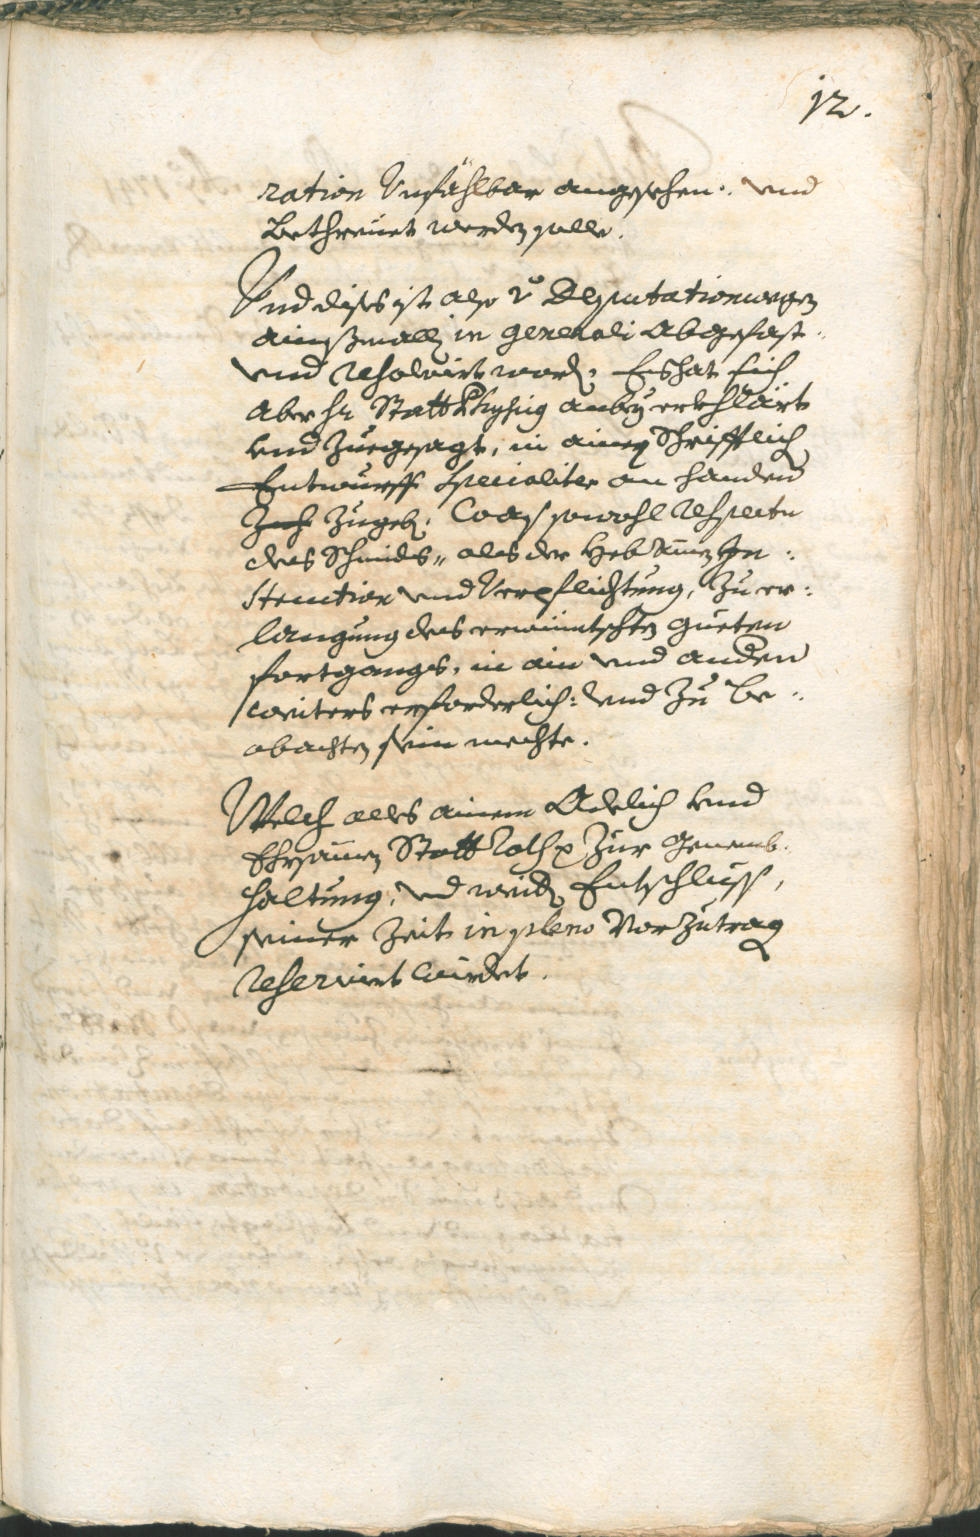 12.
ration Unfählbar angesehen: und
Betheuret werden solle.
Und dises ist also Deputationwegen
ainsmalß in generali Abgefast
und Resolvirt word. Es hat sich
aber Hr Statt Physicus anbey erkhlärt
und Zuegesagt, in ainem Schrifftlich
Entwurff Specialiter an handen
Zugeb: Was sowohl Respectu
des Schmids, als der Heb In:
struction und Verpflichtung, Zu er:
langung des erwüntschten gueten
fortgangs, in ain und andern
weiters erforderlich: und Zu be:
obachten sein mechte.
Welch alles ainem Adelich und
Ehrsamen Statt Rath Zur Genemb:
haltung, und Entschluss,
seiner Zeit in pleno Vorzutrag
Reservirt würdet.